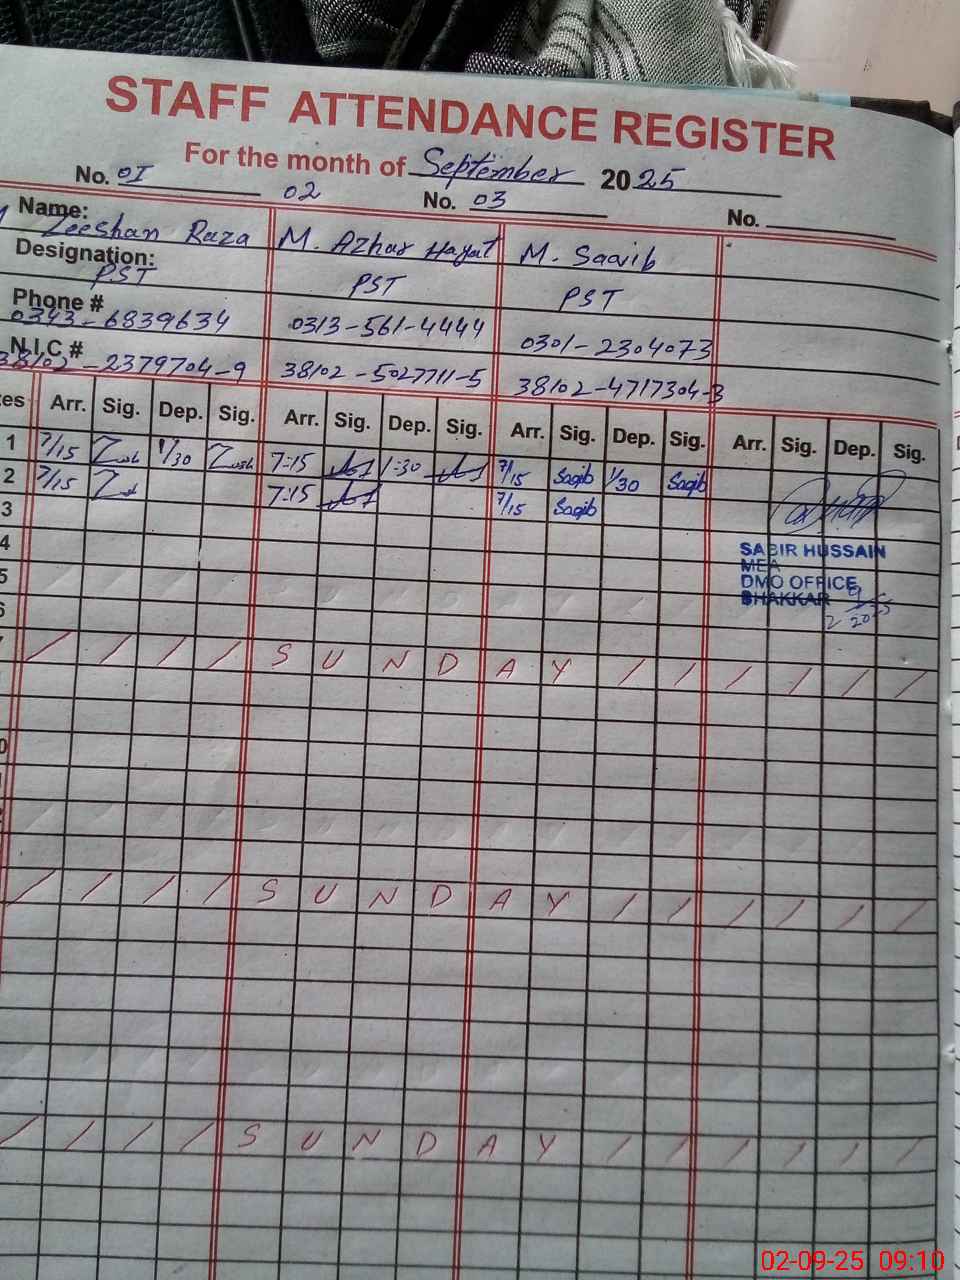 STAFF ATTENDANCE REGISTER
For the month of September 2025
No. 01 02 No. 03 No.
Name: Zeeshan Raza M. Azhar Hayat M. Saqib
Designation: PST PST PST
Phone # 0343-6839634 0313-561-4444 0301-2304073
N.I.C # 38102-2379704-9 38102-5027711-5 38102-4717304-3
Arr. Sig. Dep. Sig. Arr. Sig. Dep. Sig. Arr. Sig. Dep. Sig. Arr. Sig. Dep. Sig.
1 7/15 1/30 7:15 1:30 7/15 Saqib 1/30 Saqib
2 7/15 7:15 7/15 Saqib
3
4
5
6
SABIR HUSSAIN
MEA
DMO OFFICE
BHAKKAR
/ / / / S U N D A Y / / / / / /
/ / / / S U N D A Y / / / / / /
/ / / / S U N D A Y / / / / / /
02-09-25 09:10